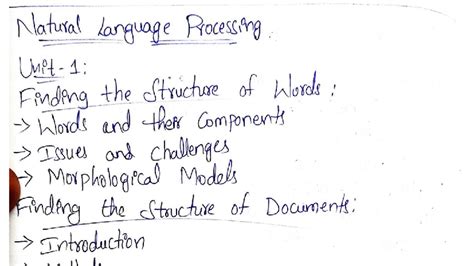 Natural Language Processing.
Unit-1:
Finding the Structure of Words:
→ Words and their Components
→ Issues and challenges
→ Morphological Models
Finding the Structure of Documents:
→ Introduction